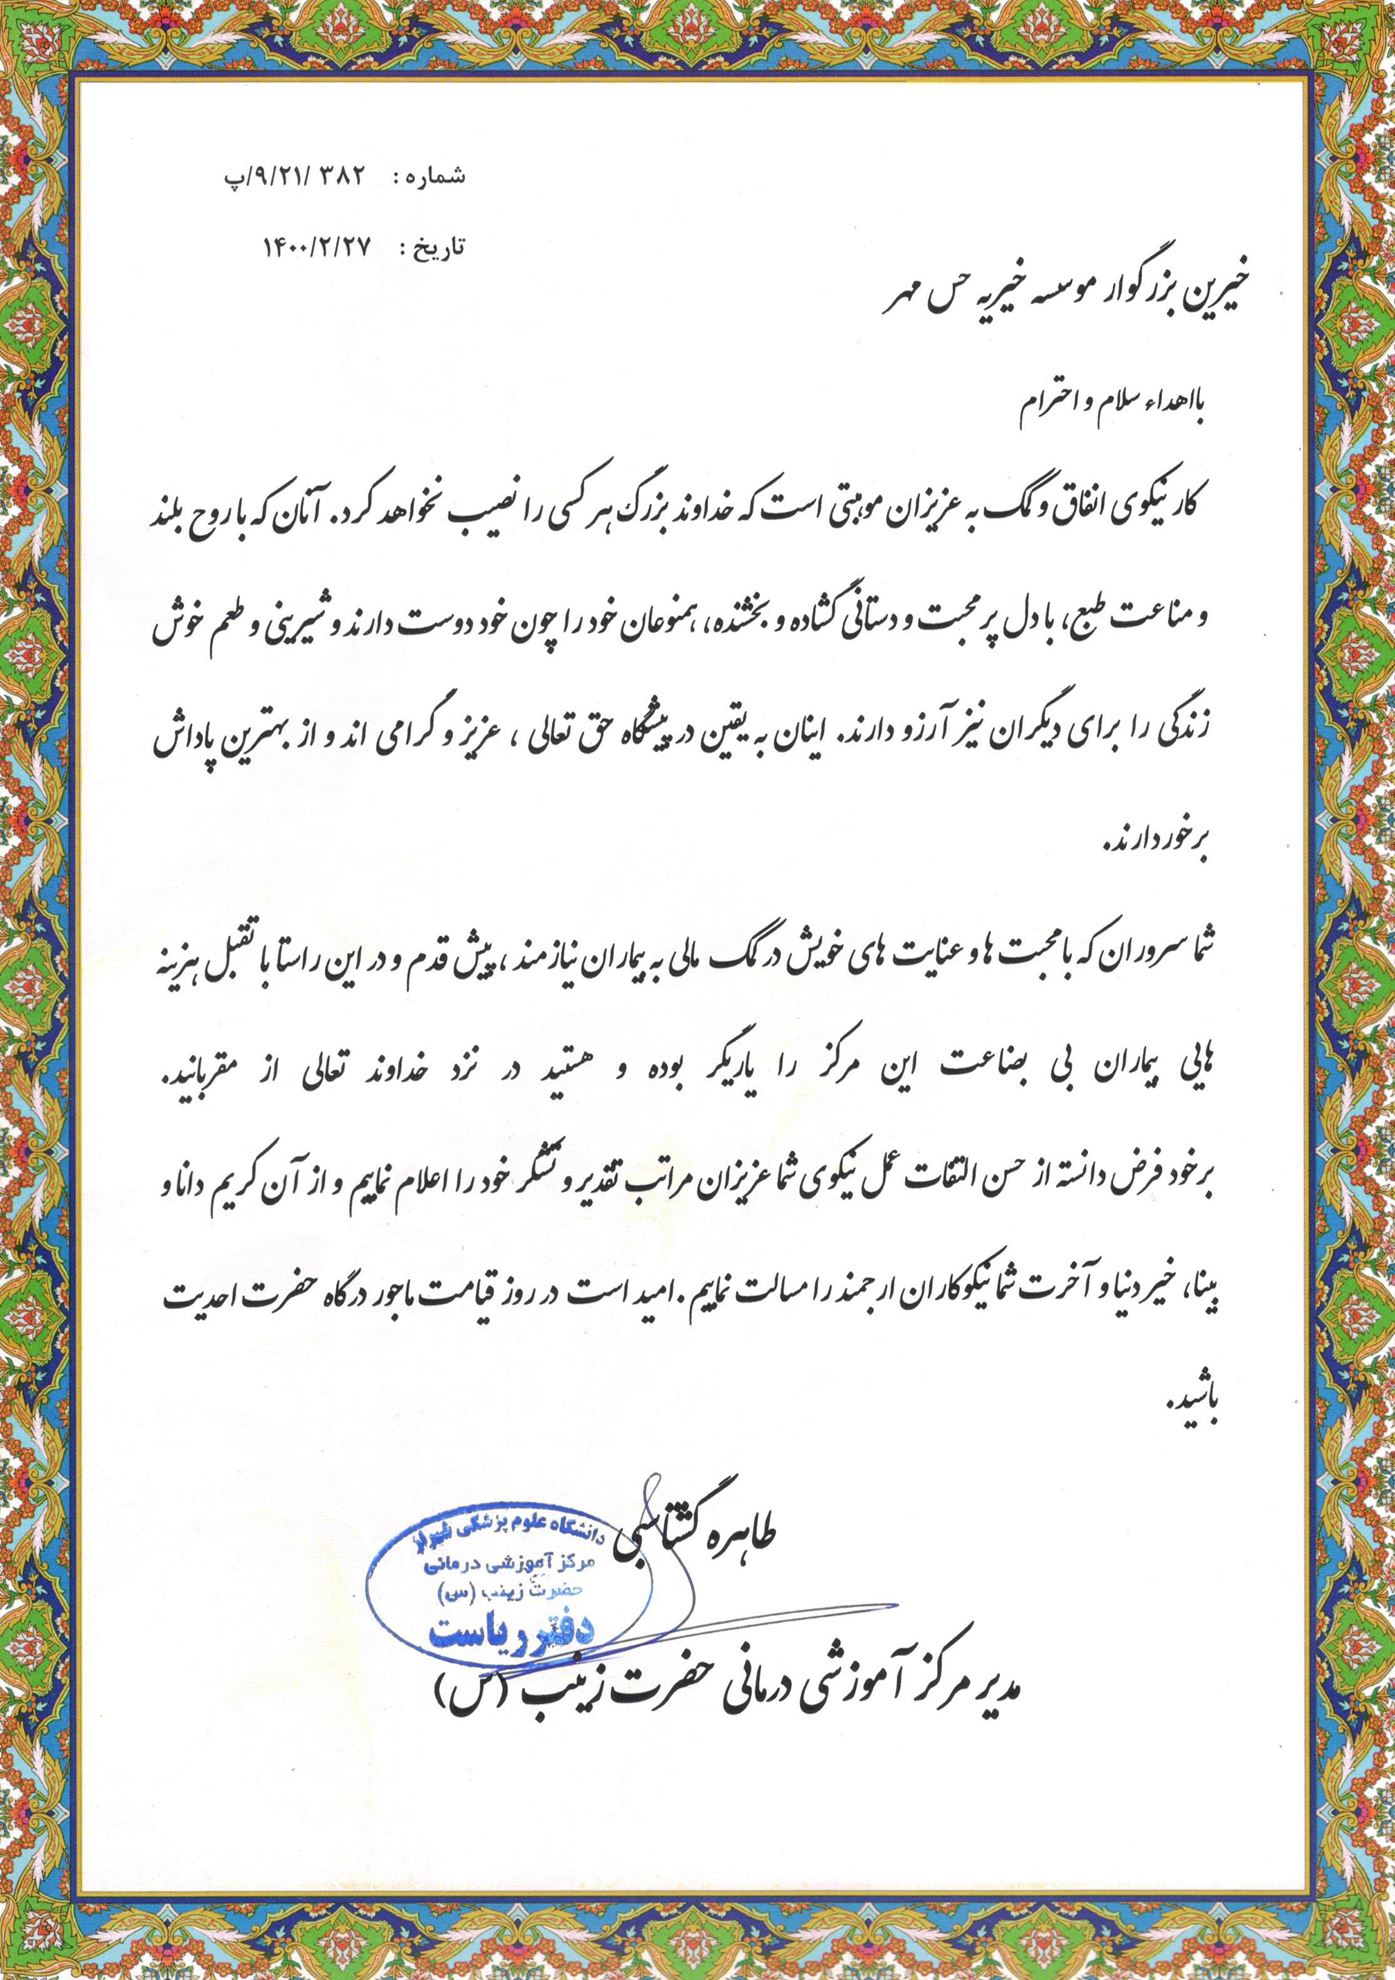 شماره : ۳۸۲ /۹/۲۱/پ
تاریخ : ۱۴۰۰/۲/۲۷
خیرین بزرگوار موسسه خیریه حس مهر
بااهداء سلام و احترام
کار نیکوی انفاق و کمک به عزیزان موهبتی است که خداوند بزرگ هر کسی را نصیب نخواهد کرد. آنان که با روح بلند
و مناعت طبع، با دل پر محبت و دستانی گشاده و بخشنده، همنوعان خود را چون خود دوست دارند و شیرینی و طعم خوش
زندگی را برای دیگران نیز آرزو دارند. اینان به یقین در پیشگاه حق تعالی ، عزیز و گرامی اند و از بهترین پاداش
برخوردارند.
شما سروران که با محبت ها و عنایت های خویش در کمک مالی به بیماران نیازمند ، پیش قدم و در این راستا با تقبل هزینه
هایی بیماران بی بضاعت این مرکز را یاریگر بوده و هستید در نزد خداوند تعالی از مقربانید.
برخود فرض دانسته از حسن التفات عمل نیکوی شما عزیزان مراتب تقدیر و تشکر خود را اعلام نماییم و از آن کریم دانا و
بینا، خیر دنیا و آخرت شما نیکوکاران ارجمند را مسالت نماییم .امید است در روز قیامت ماجور درگاه حضرت احدیت
باشید.
طاهره گشتاسبی
دانشگاه علوم پزشکی شیراز
مرکز آموزشی درمانی
حضرت زینب (س)
دفتر ریاست
مدیر مرکز آموزشی درمانی حضرت زینب (س)